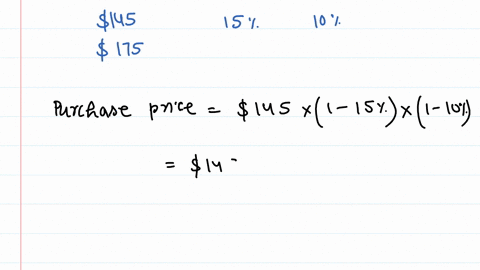 $145 15% 10%
$ 175
Purchase price = $145 x (1-15%) x (1-10%)
= $14